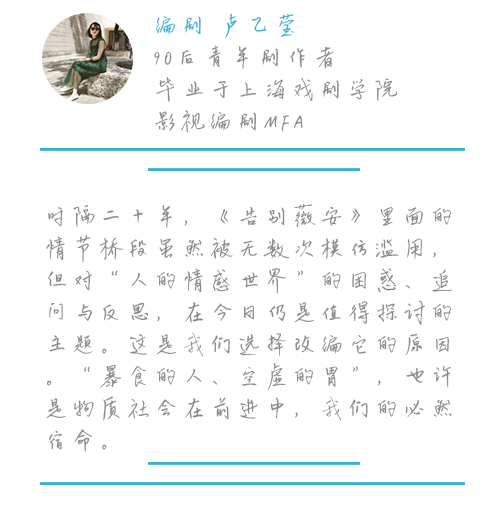 编剧 卢乙莹
90后青年剧作者
毕业于上海戏剧学院
影视编剧MFA
时隔二十年，《告别薇安》里面的
情节桥段虽然被无数次模仿滥用，
但对“人的情感世界”的困惑、追
问与反思，在今日仍是值得探讨的
主题。这是我们选择改编它的原因
。“暴食的人、空虚的胃”，也许
是物质社会在前进中，我们的必然
宿命。